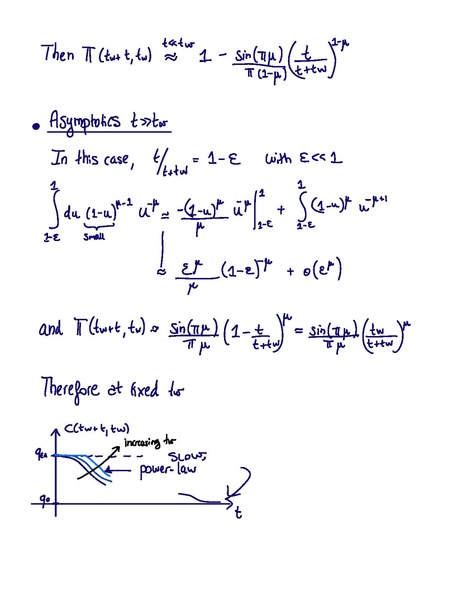 Then Π(tw+t, tw) ≈^{t≪tw} 1 - sin(πμ)/π(1-μ) (t/t+tw)^{1-μ}
• Asymptotics t≫tw
In this case, t/t+tw = 1-ε with ε≪1
∫_{1-ε}^{1} du (1-u)^{μ-1} u^{-μ} ≃ -(1-u)^μ/μ u^{-μ} |_{1-ε}^{1} + ∫_{1-ε}^{1} (1-u)^μ u^{-μ+1}
small
≈ ε^μ/μ (1-ε)^{-μ} + o(ε^μ)
and Π(tw+t, tw) ≈ sin(πμ)/πμ (1 - t/t+tw)^μ = sin(πμ)/πμ (tw/t+tw)^μ
Therefore at fixed tw
C(tw+t, tw)
increasing tw
qEA
slow,
power-law
q0
t